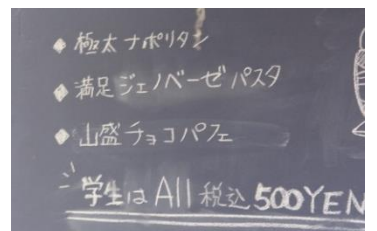 ◆ 極太ナポリタン
◆ 満足ジェノベーゼパスタ
◆ 山盛チョコパフェ
学生はAll税込500YEN